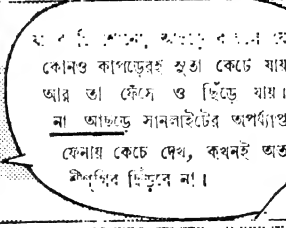 কোনও কাপড়েরই সুতা কেটে যায়
আর তা ফেঁসে ও ছিঁড়ে যায়।
না আছড়ে সানলাইটের অপর্য্যাপ্ত
ফেনায় কেচে দেখ, কখনই অত
ছিঁড়বে না।